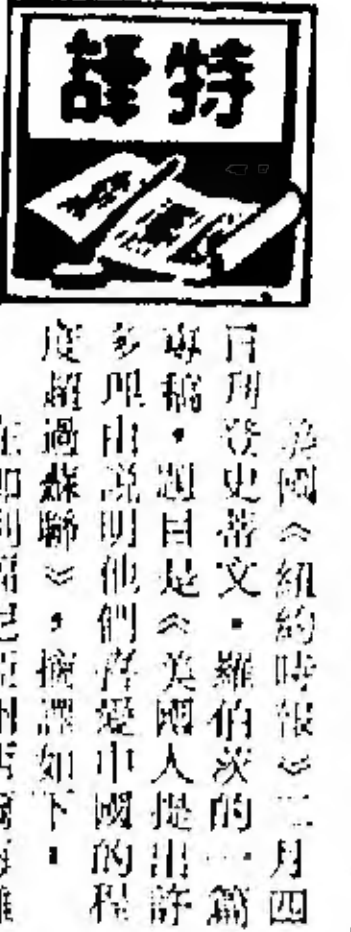 特譯
美國《紐約時報》二月四
日刊登史蒂文・羅伯茨的一篇
專稿，題目是《美國人提出許
多理由說明他們喜愛中國的程
度超過蘇聯》，摘譯如下。